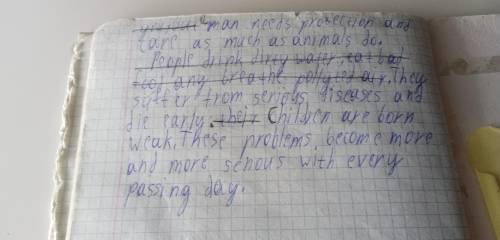 man needs protection and
care as much as animals do.
People drink dirty water, eat bad
food any breathe polluted air. They
suffer from serious diseases and
die early. their Children are born
weak. These problems become more
and more serious with every
passing day.